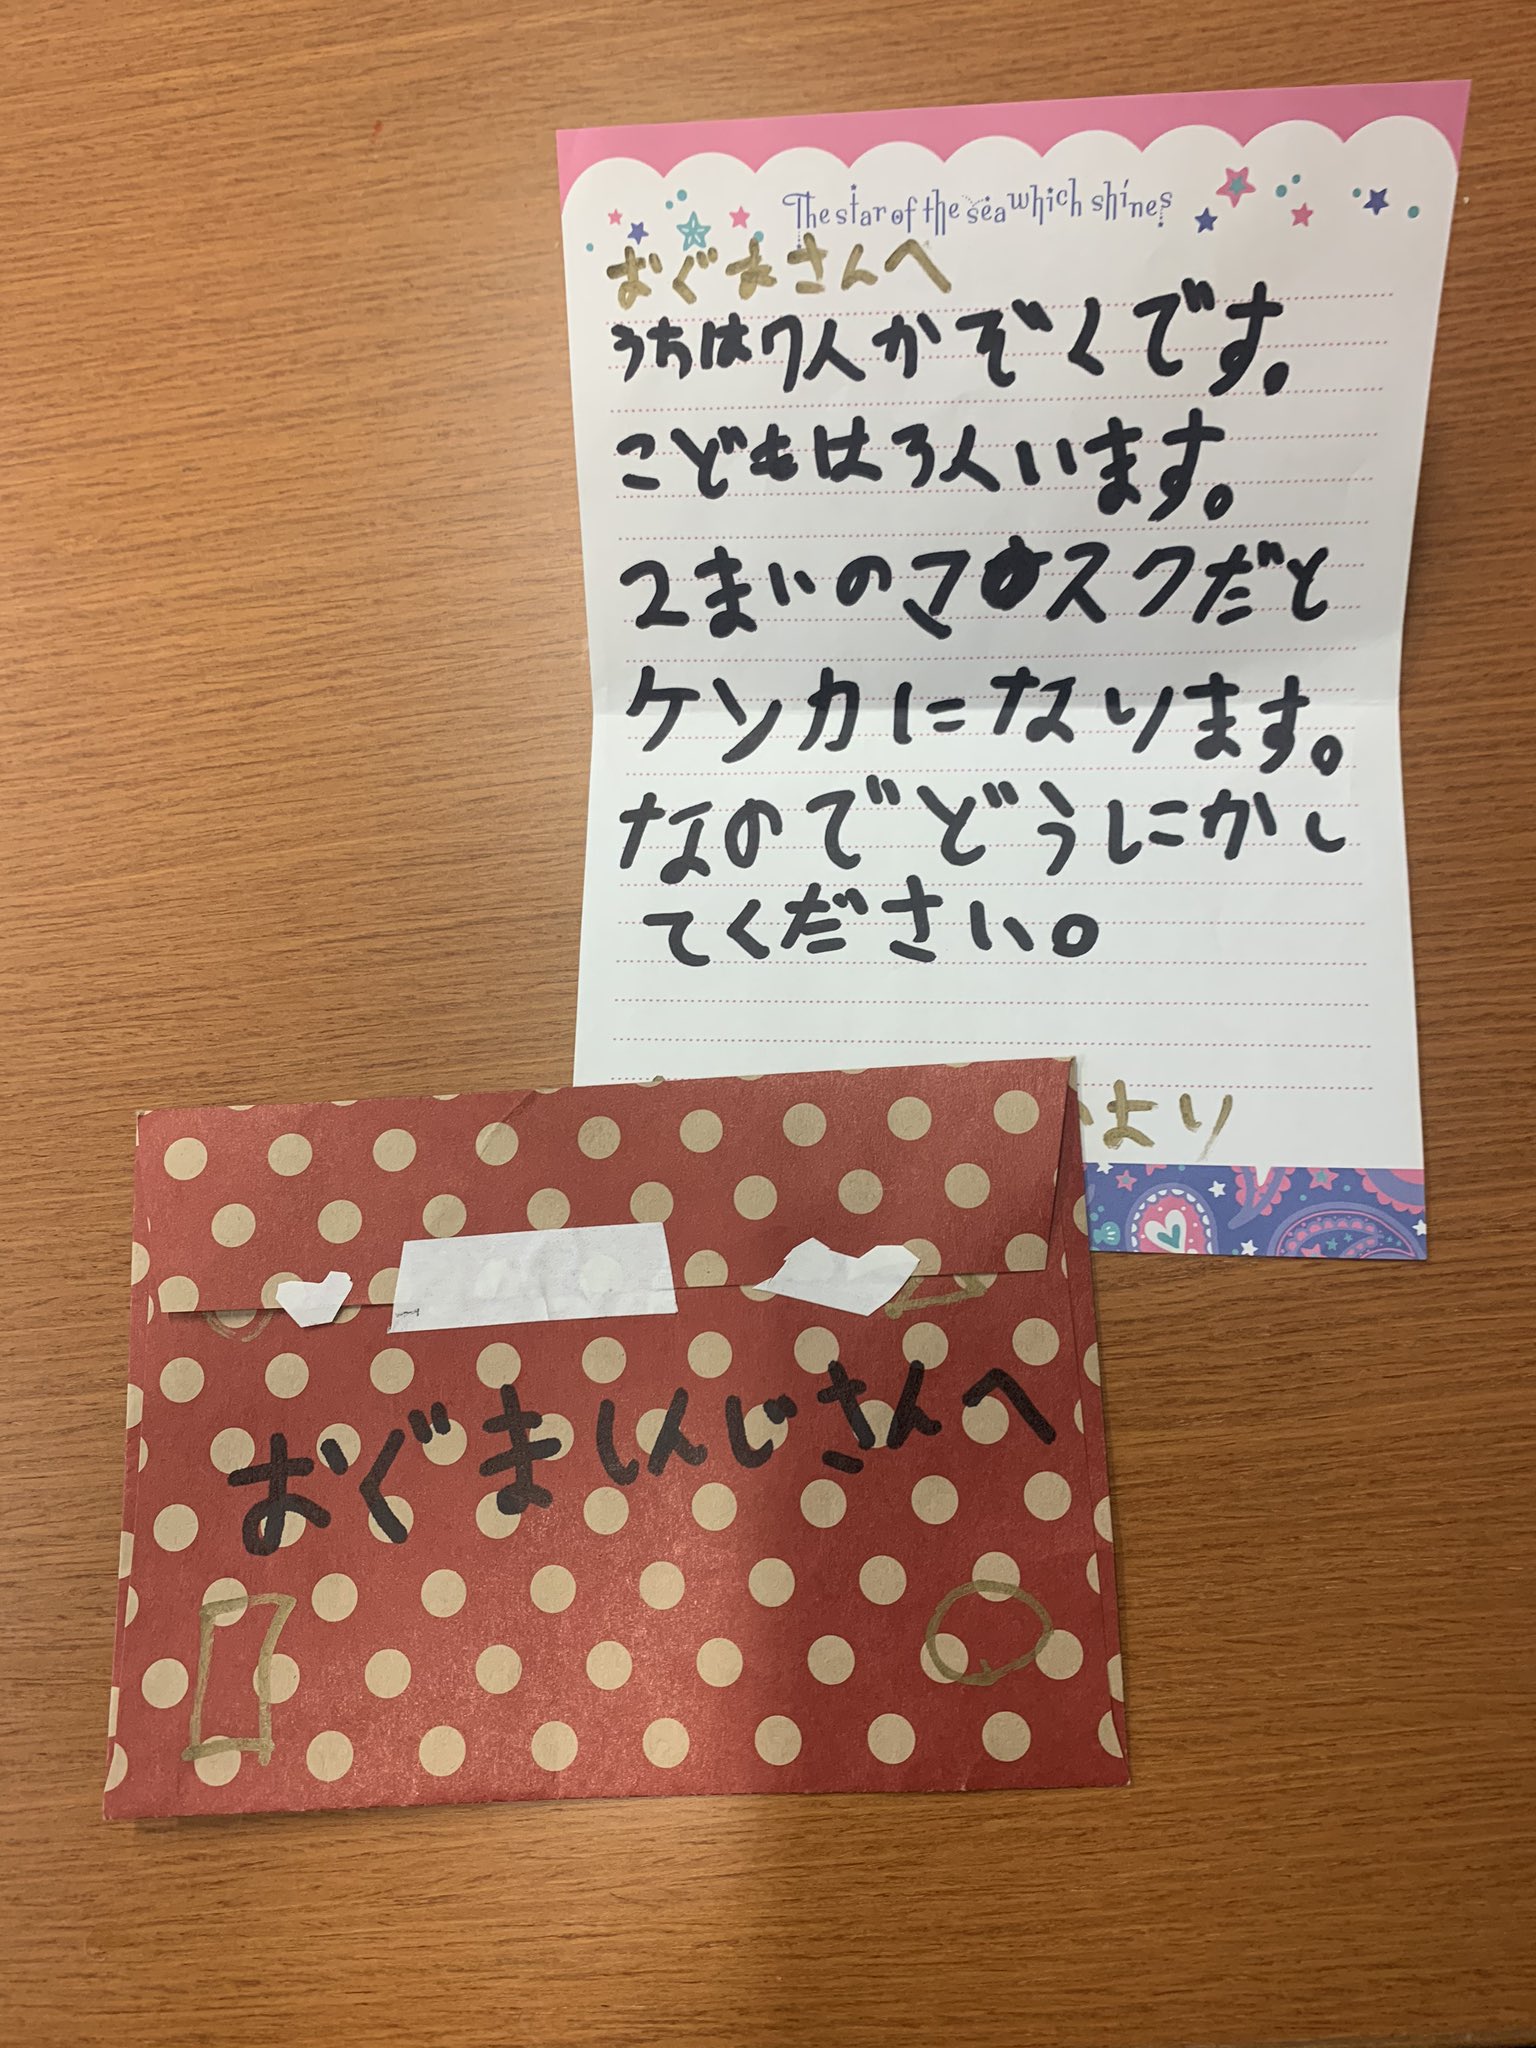 The star of the sea which shines
おぐまさんへ
うちは7人かぞくです。
こどもは3人います。
2まいのマスクだと
ケンカになります。
なのでどうにかし
てください。
より
おぐましんじさんへ